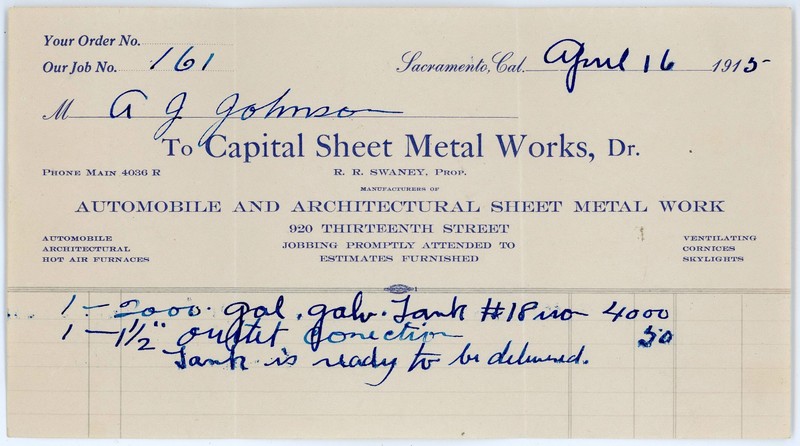 Your Order No.
Our Job No. 161
Sacramento, Cal. April 16 1915
M A J Johnson
To Capital Sheet Metal Works, Dr.
Phone Main 4036 R
R. R. SWANEY, Prop.
MANUFACTURERS OF
AUTOMOBILE AND ARCHITECTURAL SHEET METAL WORK
920 THIRTEENTH STREET
AUTOMOBILE
ARCHITECTURAL
HOT AIR FURNACES
JOBBING PROMPTLY ATTENDED TO
ESTIMATES FURNISHED
VENTILATING
CORNICES
SKYLIGHTS
1 - 2000 gal. galv. Tank #18 iron 4000
1 - 1½" outlet conection 50
Tank is ready to be delivered.